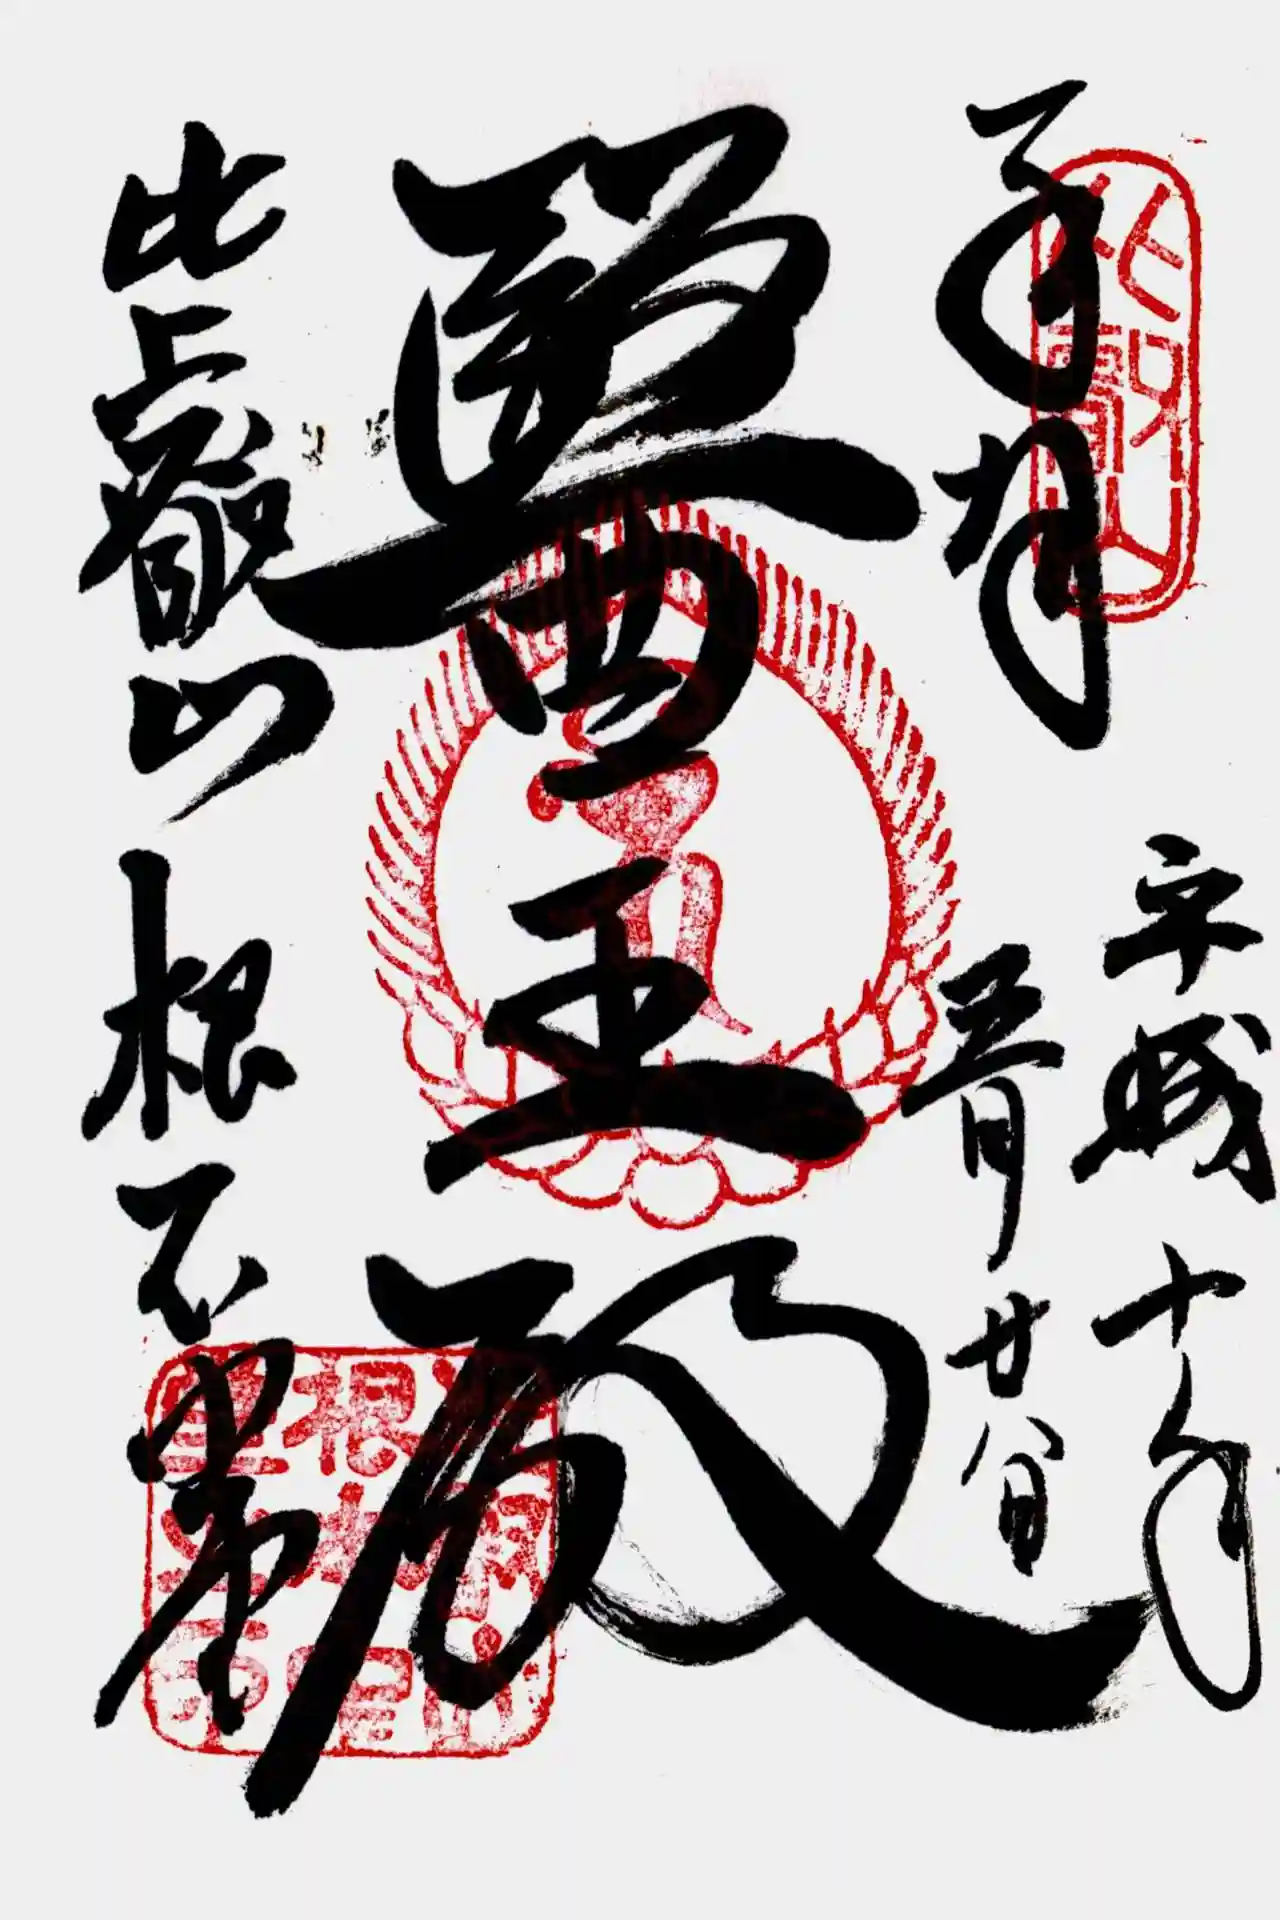 奉拝
比叡山
平成十八年
五月廿八日
醫王殿
比叡山 根本中堂
比叡山
根本中
堂之印